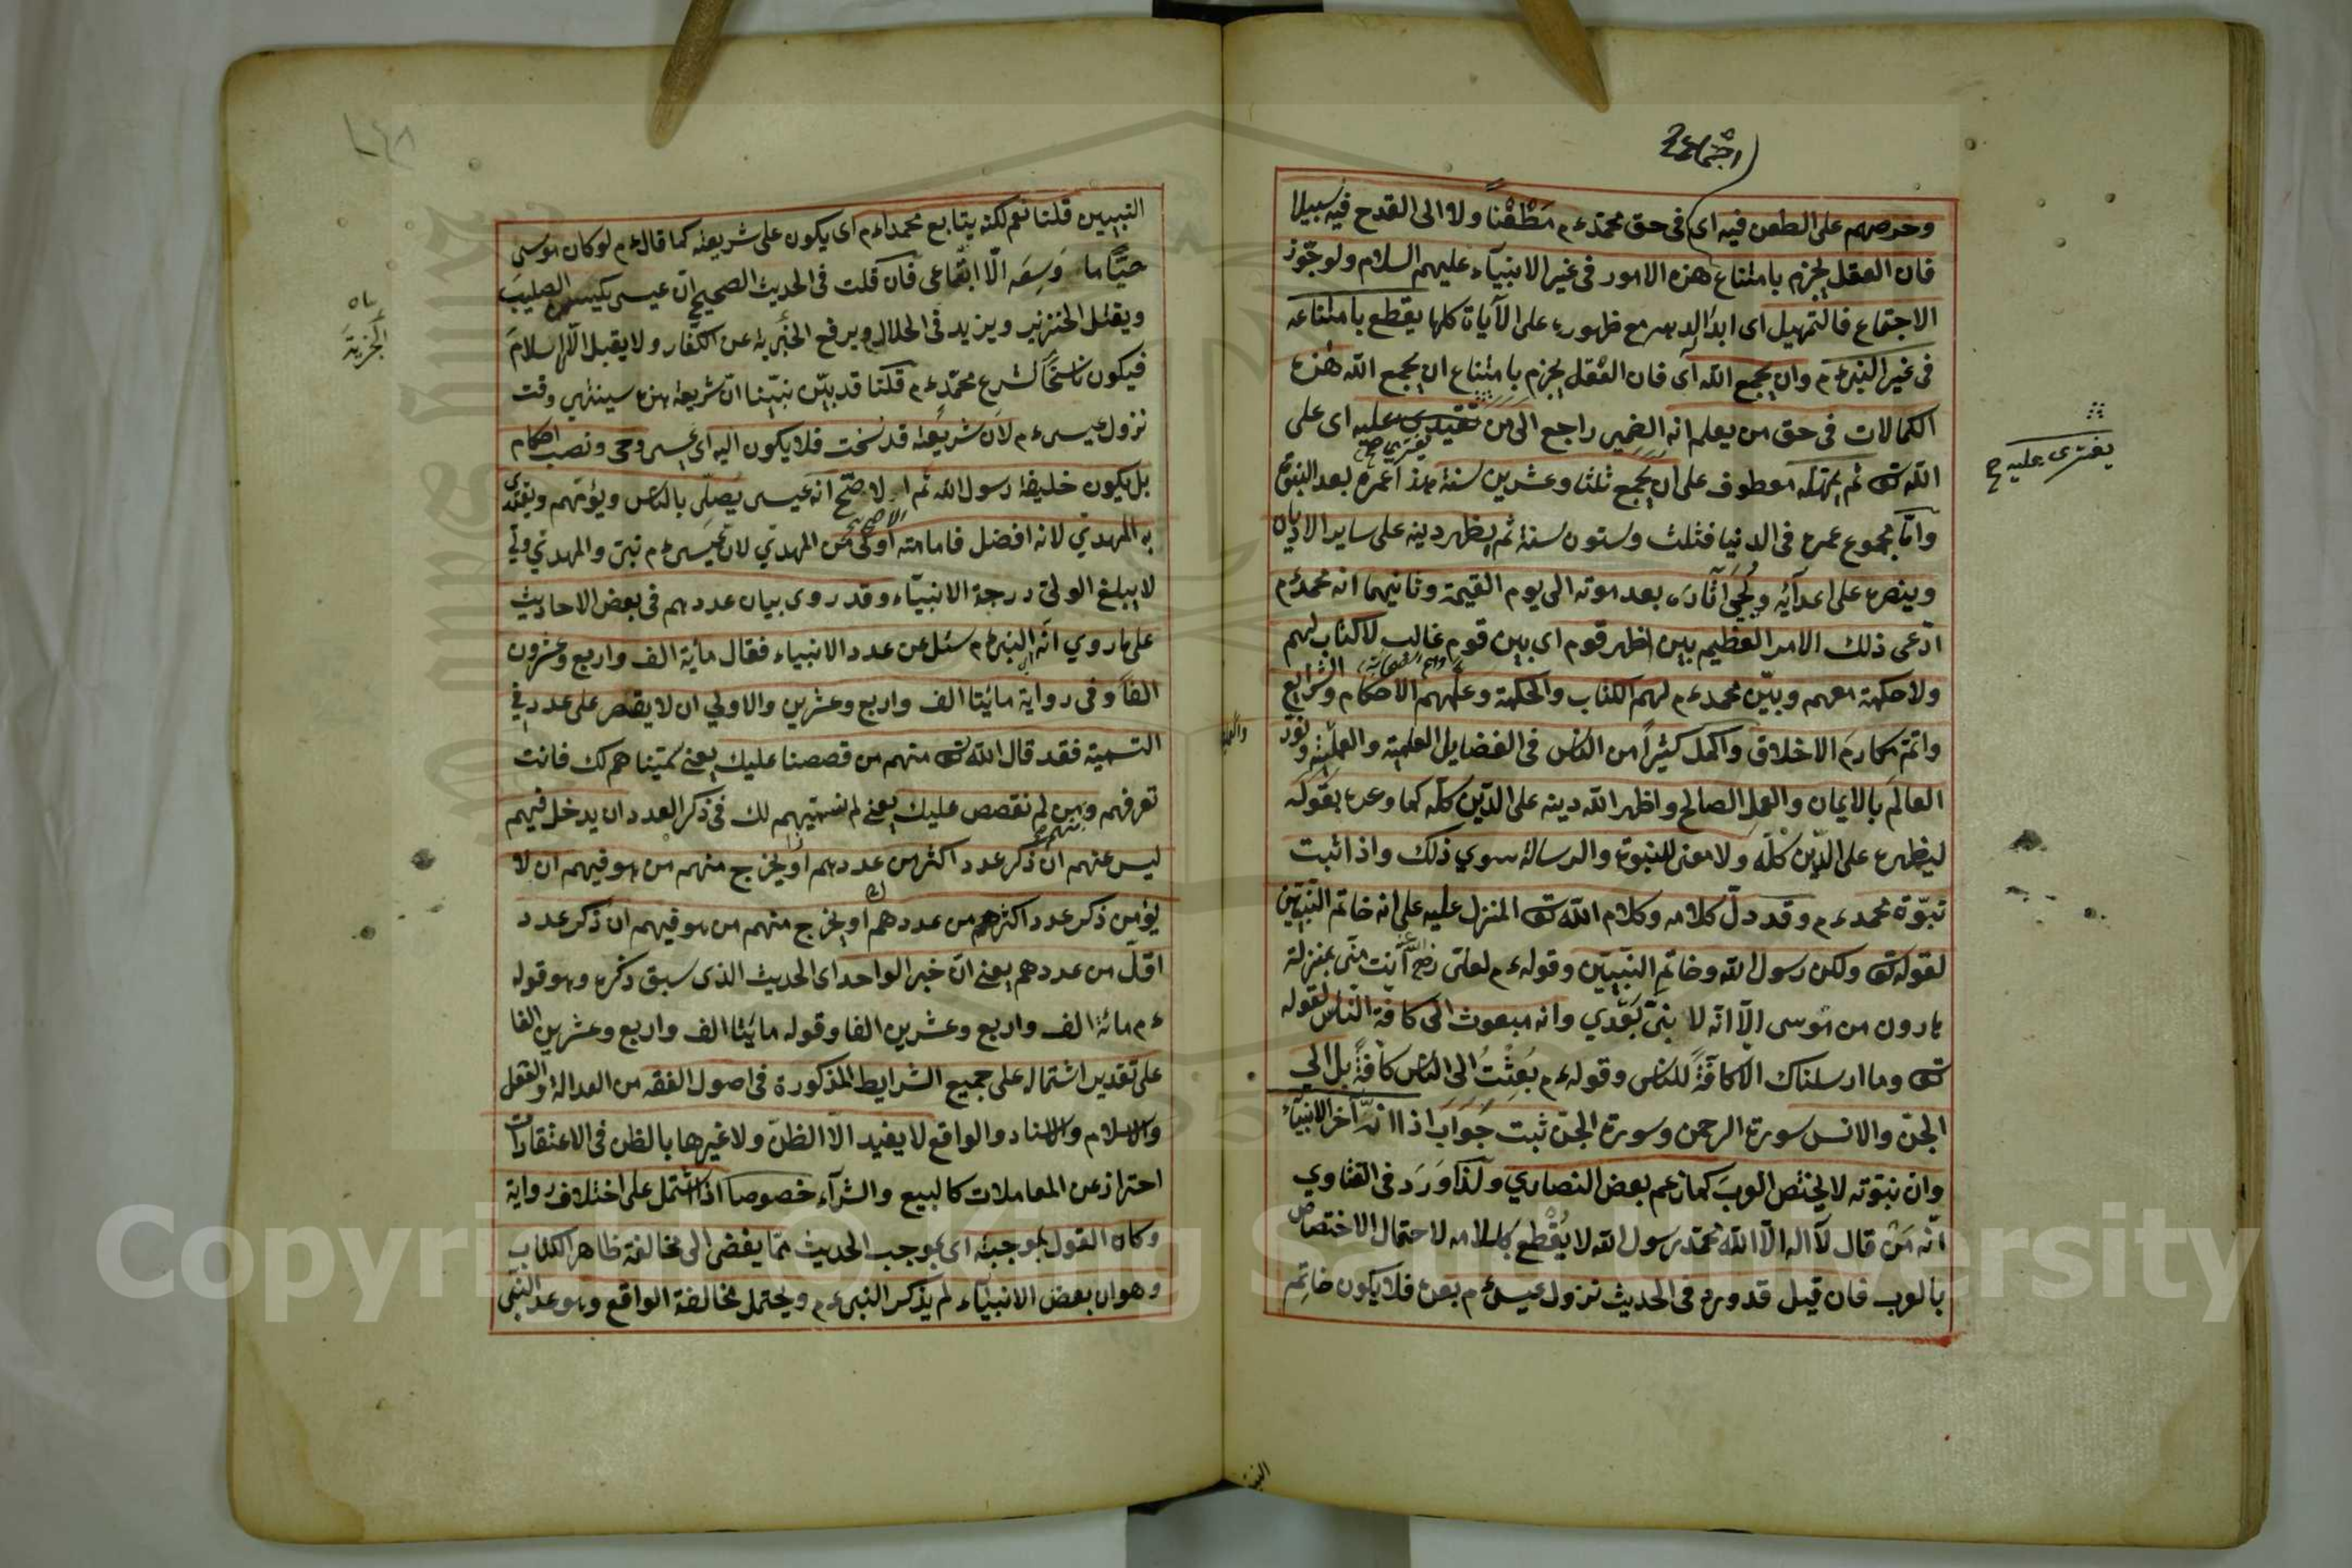 اجتماع
وحرصهم على الطعن فيه اى فى حق محمد ءم مَطْعَنًا ولا الى القدح فيه سبيلا
فان العقل يجزم بامتناع هذه الامور فى غير الانبيآء عليهم السلام ولو جوّز
الاجتماع فالتمهيل اى ابدًا الدهر مع ظهوره على الآيات كلها يقطع بامتناعه
فى غير النبى ءم وان يجمع الله آى فان العقل يجزم بامتناع ان يجمع الله هذه
الكمالات فى حق من يعلم انه الضمير راجع الى من عليه اى على
يفترى صح
يفترى عليه ح
الله تع ثم يمهله معطوف على ان يجمع ثلثا وعشرين سنة هذا عمره بعد النبوّة
وامّا مجموع عمره فى الدنيا فثلث وستون سنة ثم يظهر دينه على ساير الاديان
وينصره على اعدآئه ويُحْيى آثارَه بعد موته الى يوم القيمة وثانيهما انه محمد ءم
ادّعى ذلك الامر العظيم بين اظهر قوم اى بين قوم غالب لا كتاب لهم
ولا حكمة معهم وبيّن محمد ءم لهم الكتاب والحكمة وعلّمهم الاحكام والشرايع
واتمّ مكارمَ الاخلاق واكمل كثيرًا من الناس فى الفضايل العلمية والعمليّة ونوّر
العالَمَ بالايمان والعمل الصالح واظهر الله دينه على الدّين كلّه كما وعده بقوله
ليظهره على الدّين كلّه ولا معنى للنبوة والرسالة سوي ذلك واذا ثبت
نبوّة محمد ءم وقد دلّ كلامه وكلام الله تع المنزل عليه على انه خاتم النبيّين
لقوله تع ولكن رسول الله وخاتم النبيّين وقوله ءم لعلى رضى الله عنه انت منّى بمنزلة
هارون من موسى الّا انّه لا نبىّ بَعْدي وانه مبعوث الى كافّة الناس لقوله
تع وما ارسلناك الا كافّةً للناس وقوله ءم بُعِثْتُ الى الناس كافةً بل الى
الجنّ والانس سورة الرحمن وسورة الجنّ ثبت جواب اذا انّه آخر الانبيآء
وان نبوّته لا يختص العرب كما زعم بعض النصارى ولذا وَرَدَ فى الفتاوي
انّه مَن قال لآ اله الّا الله محمّد رسول الله لا يُقْطع باسلامه لاحتمال الاختصاص
بالعرب فان قيل قد ورد فى الحديث نزول عيسى ءم بعده فلا يكون خاتِم
النبيين قلنا نعم لكنه يتابع محمدا ءم اى يكون على شريعته كما قال ءم لو كان موسى
حيًّا ما وَسِعَه الّا اتّباعى فان قلت فى الحديث الصحيح انّ عيسى يكسر الصليبَ
ويقتل الخنزير ويزيد فى الحلال ويرفع الجزية عن الكفّار ولا يقبل الّا الاسلامَ
الجزيةَ
فيكون ناسخًا لشرع محمّد ءم قلنا قد بيّن نبيّنا انّ شريعة هذه سينتهى وقت
نزول عيسى ءم لان شريعته قد نسخت فلا يكون اليه اى عيسى وحى ونصب احكام
بل يكون خليفة رسول الله ثم الاصحّ انه عيسى يصلّى بالناس ويؤمّهم ويقتدى
به المهدي لانه افضل فامامته اولى من المهدي لان عيسى ءم نبىّ والمهدي ولىّ
لا يبلغ الولىّ درجة الانبيآء وقد روى بيان عددهم فى بعض الاحاديث
على ما روي انّه النبى ءم سئل عن عدد الانبياء فقال مأية الف واربع وعشرون
الفًا وفى رواية مائيتا الف واربع وعشرين والاولي ان لا يقتصر على عدد فى
التسمية فقد قال الله تع منهم من قصصنا عليك يعنى سمّيناهم لك فانت
تعرفهم ومنهم من لم نقصص عليك يعنى لم نسمّيهم لك فى ذكر العدد ان يدخل فيهم
ليس منهم ان ذكر عدد اكثر من عددهم او يخرج منهم من هو فيهم ان لا
يؤمن ذكر عدد اكثرهم من عددهم او يخرج منهم من هو فيهم ان ذكر عدد
اقلّ من عددهم يعنى انّ خبر الواحد اى الحديث الذى سبق ذكره وهو قوله
ءم مائة الف واربع وعشرين الفا وقوله مايتا الف واربع وعشرين الفا
على تقدير اشتماله على جميع الشرايط المذكورة فى اصول الفقه من العدالة والعقل
والاسلام والاسناد والواقع لا يفيد الّا الظنّ ولا غيرها بالظن فى الاعتقادات
احتراز عن المعاملات كالبيع والشرآء خصوصا اذا اشتمل على اختلاف رواية
وكان القول بموجبه اى بموجب الحديث ممّا يفضى الى مخالفة ظاهر الكتاب
وهو ان بعض الانبيآء لم يذكر النبى ءم ويحتمل مخالفة الواقع وهو عدّ النبّى
Copyright © King Saud University